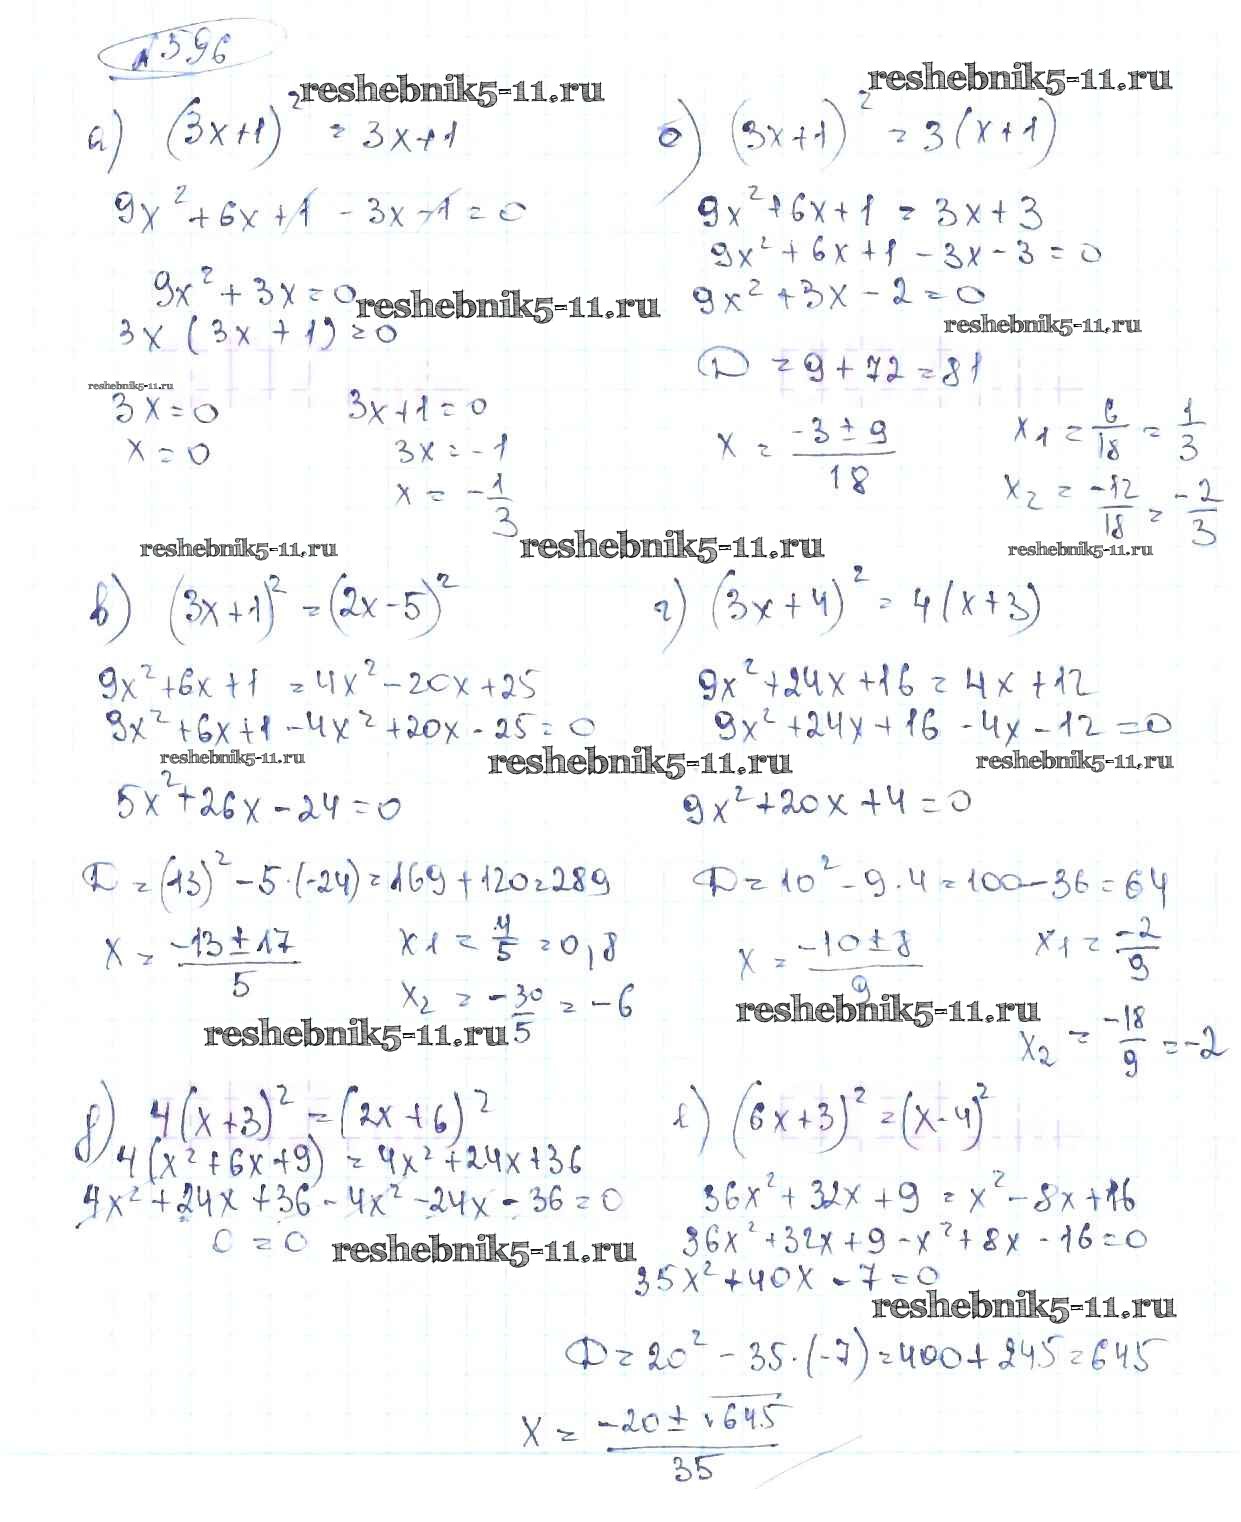 №596
reshebnik5-11.ru
reshebnik5-11.ru
а) (3x+1)² = 3x+1
9x² + 6x + 1 - 3x - 1 = 0
9x² + 3x = 0
reshebnik5-11.ru
3x (3x + 1) = 0
reshebnik5-11.ru
3x = 0
x = 0
3x+1 = 0
3x = -1
x = -1/3
б) (3x+1)² = 3(x+1)
9x²+6x+1 = 3x+3
9x² + 6x+1 - 3x - 3 = 0
9x² + 3x - 2 = 0
reshebnik5-11.ru
D = 9 + 72 = 81
x = (-3 ± 9)/18
x1 = 6/18 = 1/3
x2 = -12/18 = -2/3
reshebnik5-11.ru
reshebnik5-11.ru
reshebnik5-11.ru
в) (3x+1)² = (2x-5)²
9x²+6x+1 = 4x²-20x+25
9x²+6x+1-4x²+20x-25=0
reshebnik5-11.ru
reshebnik5-11.ru
5x²+26x-24=0
D = (13)² - 5·(-24) = 169+120=289
x = (-13±17)/5
x1 = 4/5 = 0,8
x2 = -30/5 = -6
reshebnik5-11.ru
г) (3x+4)² = 4(x+3)
9x²+24x+16 = 4x+12
9x²+24x+16 - 4x - 12 = 0
reshebnik5-11.ru
9x²+20x+4=0
D = 10² - 9·4 = 100-36=64
x = (-10±8)/9
x1 = -2/9
reshebnik5-11.ru
x2 = -18/9 = -2
д) 4(x+3)² = (2x+6)²
4(x²+6x+9) = 4x²+24x+36
4x²+24x+36-4x²-24x-36=0
0 = 0
reshebnik5-11.ru
е) (6x+3)² = (x-4)²
36x²+32x+9 = x²-8x+16
36x²+32x+9-x²+8x-16=0
35x²+40x-7=0
reshebnik5-11.ru
D = 20² - 35·(-7) = 400+245=645
x = (-20±√645)/35